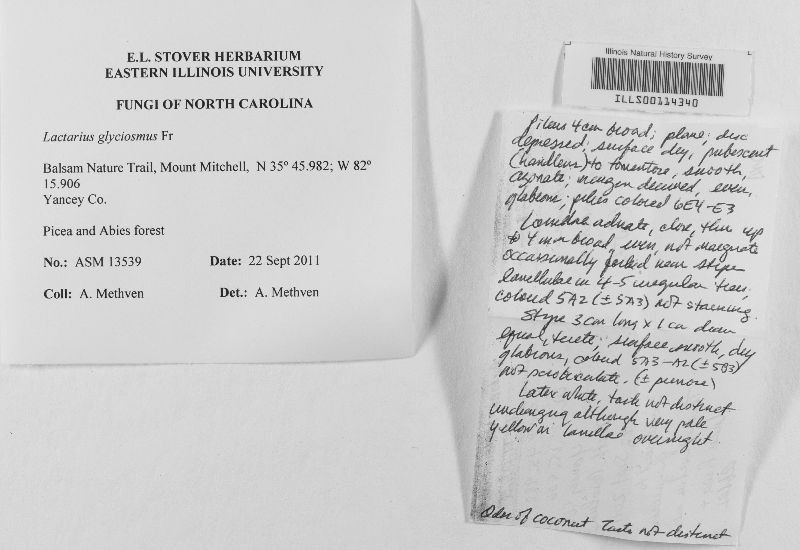 E.L. STOVER HERBARIUM
EASTERN ILLINOIS UNIVERSITY
FUNGI OF NORTH CAROLINA
Lactarius glyciosmus Fr
Balsam Nature Trail, Mount Mitchell, N 35º 45.982; W 82º
15.906
Yancey Co.
Picea and Abies forest
No.: ASM 13539 Date: 22 Sept 2011
Coll: A. Methven Det.: A. Methven
Illinois Natural History Survey
ILLS00114340
Pileus 4 cm broad; plane; disc
depressed; surface dry, pubescent
(handlens) to tomentose, smooth,
azonate; margin decurved, even,
glabrous; pileus colored 6E4-E3
Lamellae adnate, close, thin up
to 4 mm broad, even, not marginate
occasionally forked near stipe
lamellulae in 4-5 irregular tiers,
colored 5A2 (± 5A3) not staining.
Stipe 3 cm long x 1 cm diam
equal, terete; surface smooth, dry
glabrous, colored 5A3-A2 (± 5B3)
not scrobiculate. (± pruinose)
Latex white, taste not distinct
unchanging although very pale
yellow on lamellae overnight.
Odor of coconut Taste not distinct